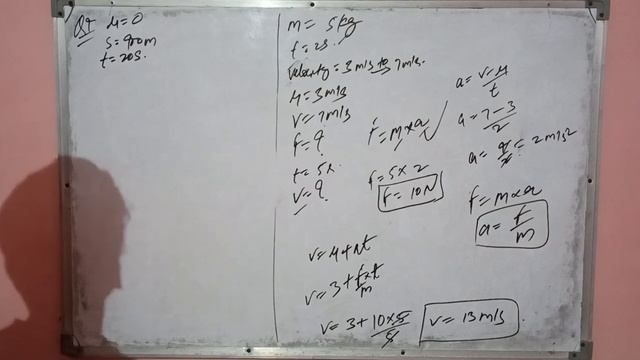 Q7 u=0
s=400m
t=20s.
m= 5kg
t=2s.
Velocity=3m/s to 7m/s.
u=3m/s
v=7m/s
f=?
t=5s.
v=?
f=m×a ✓
f=5×2
f=10N
a=v-u/t
a=7-3/2
a=4/2=2m/s2
f=m×a
a=f/m
v=u+at
v=3+f×t/m
v=3+10×5/5
v=13m/s